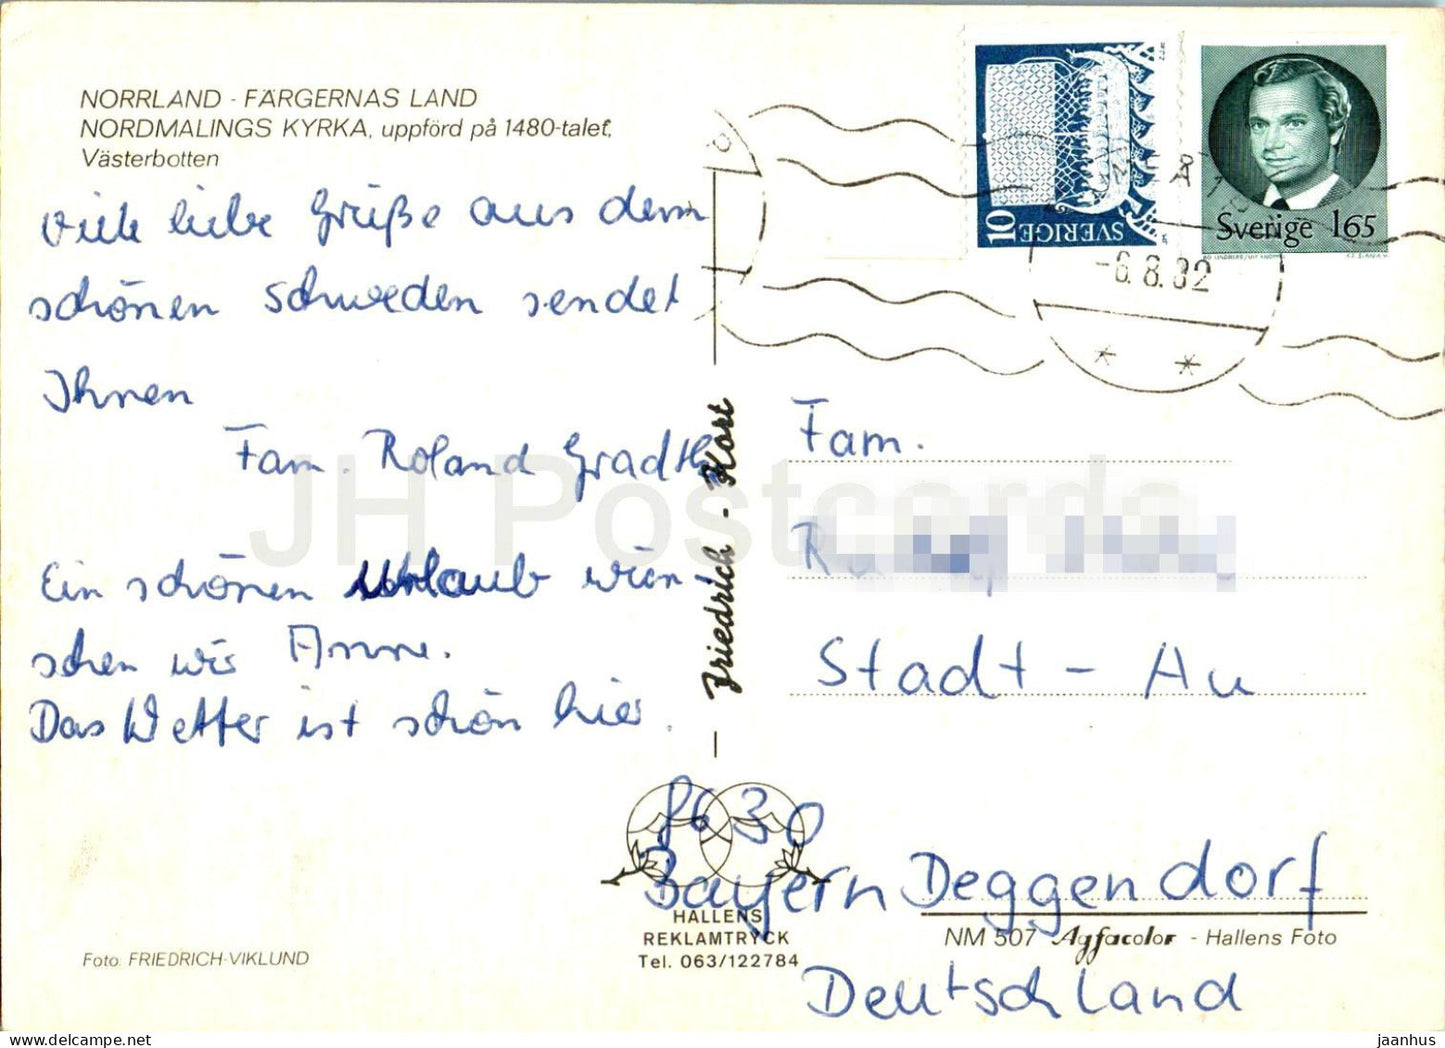 NORRLAND - FÄRGERNAS LAND
NORDMALINGS KYRKA, uppförd på 1480-talet,
Västerbotten
Viele liebe Grüße aus dem
schönen Schweden sendet
Ihnen
Fam. Roland
Ein schönen Urlaub wün
schen wir
Das Wetter ist schön hier.
Foto: FRIEDRICH-VIKLUND
Friedrich - Kort
HALLENS
REKLAMTRYCK
Tel. 063/122784
10
SVERIGE
Sverige 165
-6.8.82
Fam.
Stadt - Au
Bayern Deggendorf
NM 507 Agfacolor - Hallens Foto
Deutschland
JH Postcards
jaanhus